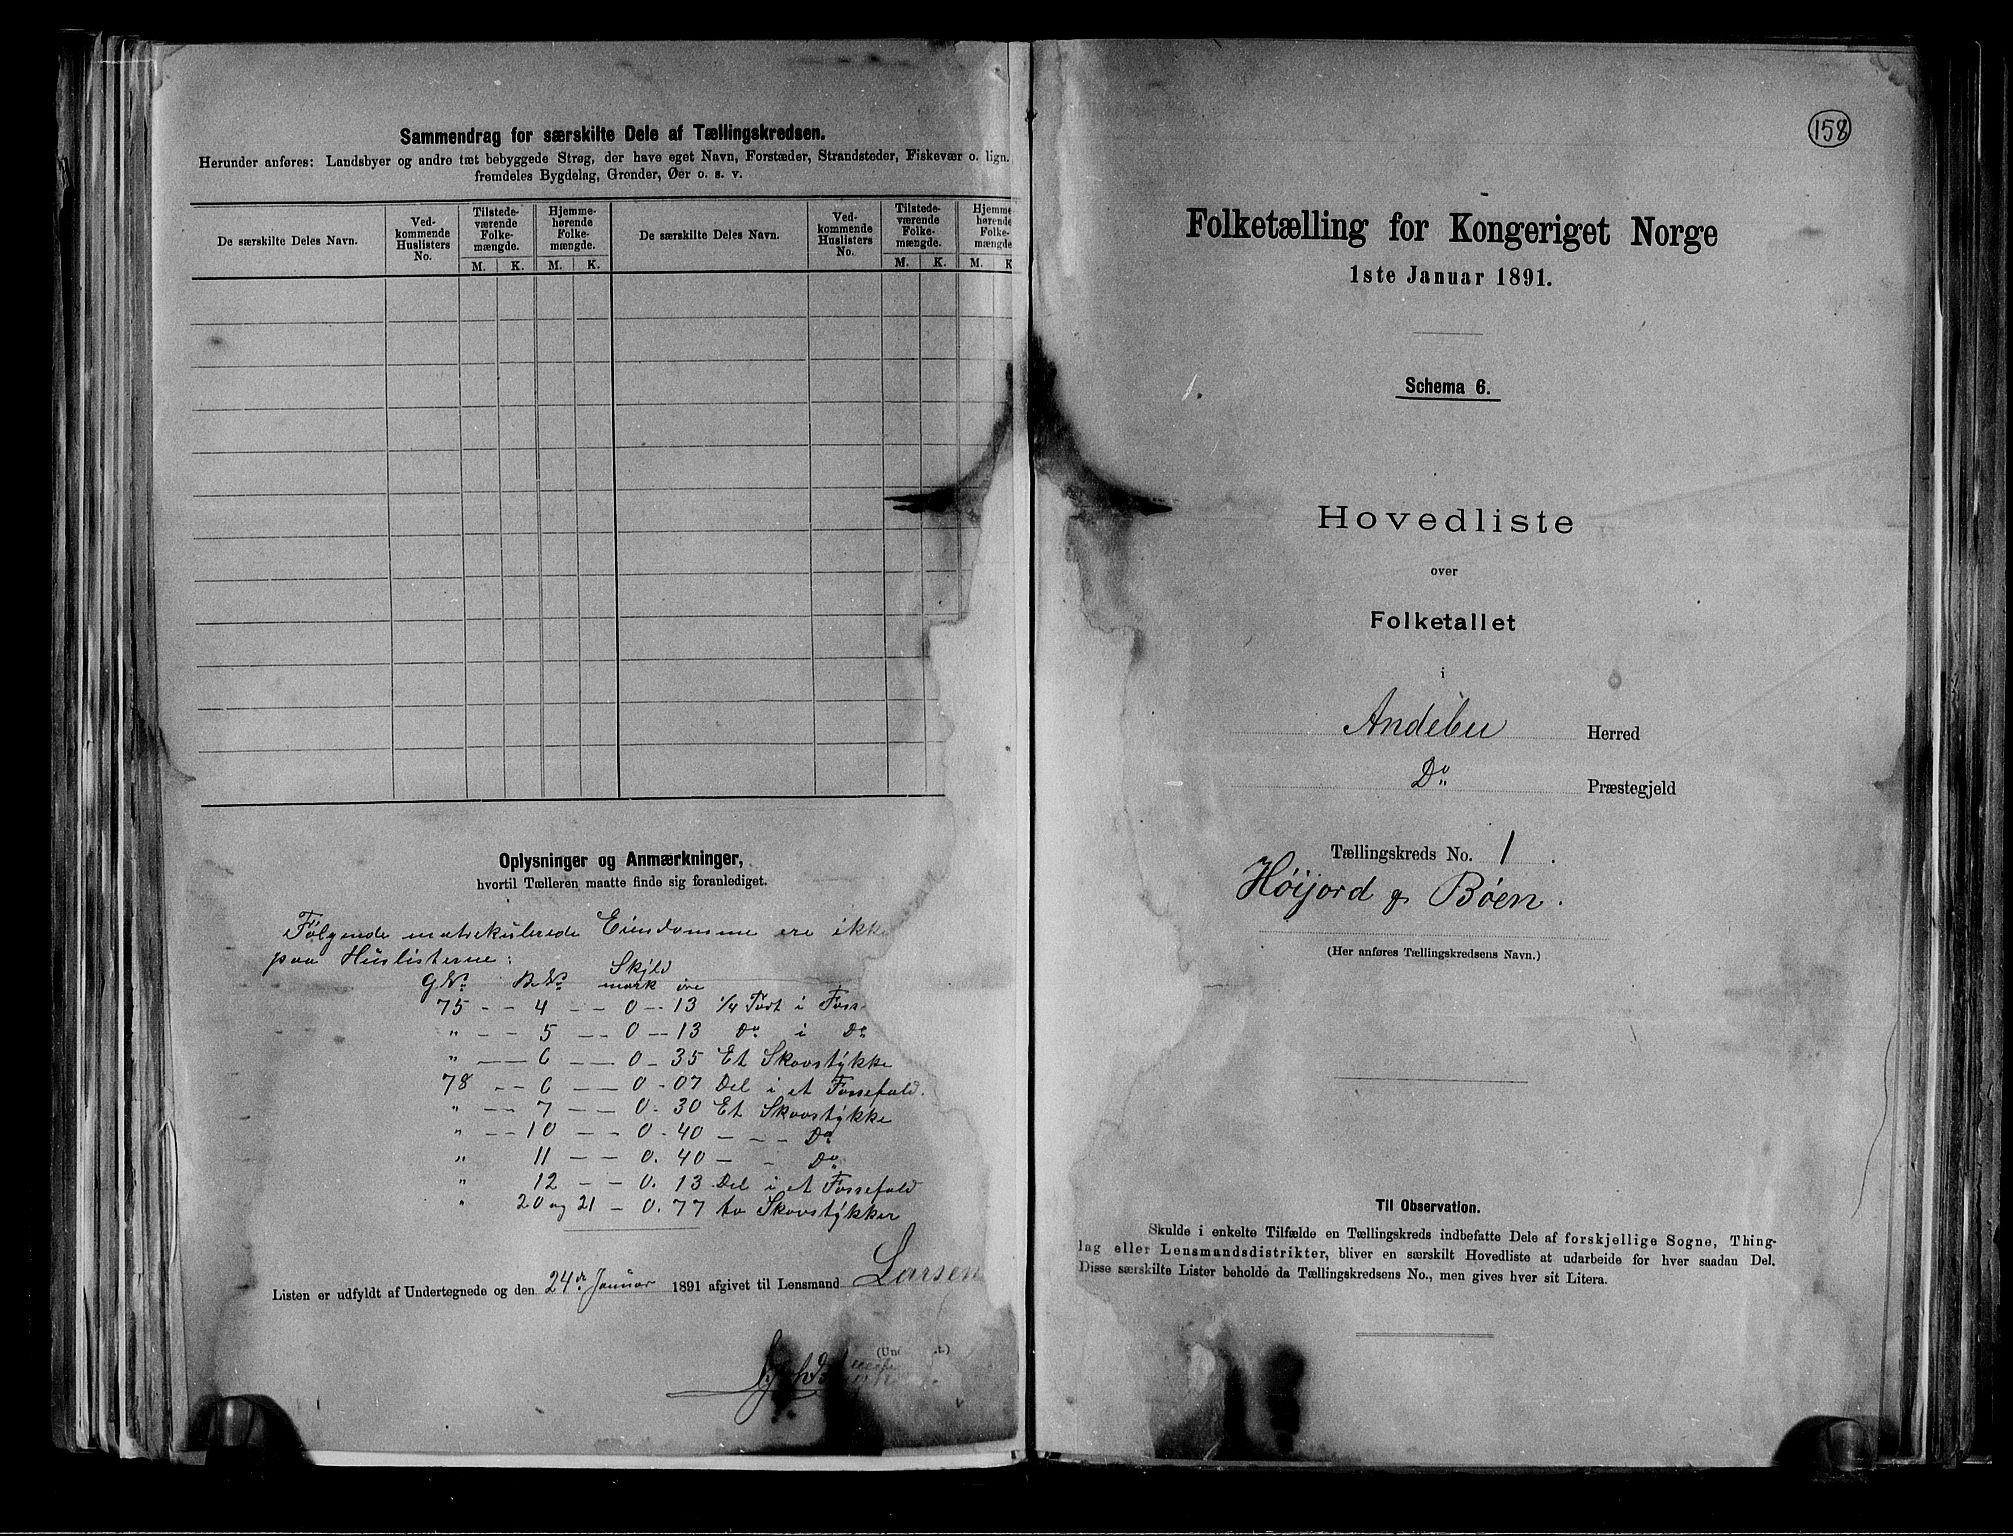 Sammendrag for særskilte Dele af Tællingskredsen.
Herunder anføres: Landsbyer og andre tæt bebyggede Strøg, der have eget Navn, Forstæder, Strandsteder, Fiskevær o. lign.
fremdeles Bygdelag, Grender, Øer o. s. v.
De særskilte Deles Navn.
Ved-
kommende
Huslisters
No.
Tilstede-
værende
Folke-
mængde.
M. K.
Hjemme-
hørende
Folke-
mængde.
M. K.
De særskilte Deles Navn.
Ved-
kommende
Huslisters
No.
Tilstede-
værende
Folke-
mængde.
M. K.
Hjemme
hørende
Folke-
mængde
M. K
Oplysninger og Anmærkninger,
hvortil Tælleren maatte finde sig foranlediget.
Følgende matrikulerede Eiendomme ere ikke
paa Huslisterne:
Skjld
GNo. BNo. mark øre
75 - - 4 - - 0 - - 13 1/4 Part i Foss-
" - - 5 - - 0 - - 13 Do i Do
" - - 6 - - 0 - 35 Et Skovstykke
78 - - 6 - - 0 - 07 Del i et Fossefald.
" - - 7 - - 0 - 30 Et Skovstykke
" - - 10 - - 0 - 40 - - - Do
" 11 - - 0. 40 - - Do
" 12 - - 0. 13 Del i et Fossefald
" 20 og 21 - 0. 77 to Skovstykker
Listen er udfyldt af Undertegnede og den 24de Januar 1891 afgivet til Lensmand Larsen
158
Folketælling for Kongeriget Norge
1ste Januar 1891.
Schema 6.
Hovedliste
over
Folketallet
i
Andebu Herred
Do Præstegjeld
Tællingskreds No. 1.
Høijord og Bøen.
(Her anføres Tællingskredsens Navn.)
Til Observation.
Skulde i enkelte Tilfælde en Tællingskreds indbefatte Dele af forskjellige Sogne, Thing-
lag eller Lensmandsdistrikter, bliver en særskilt Hovedliste at udarbeide for hver saadan Del.
Disse særskilte Lister beholde da Tællingskredsens No., men gives hver sit Litera.